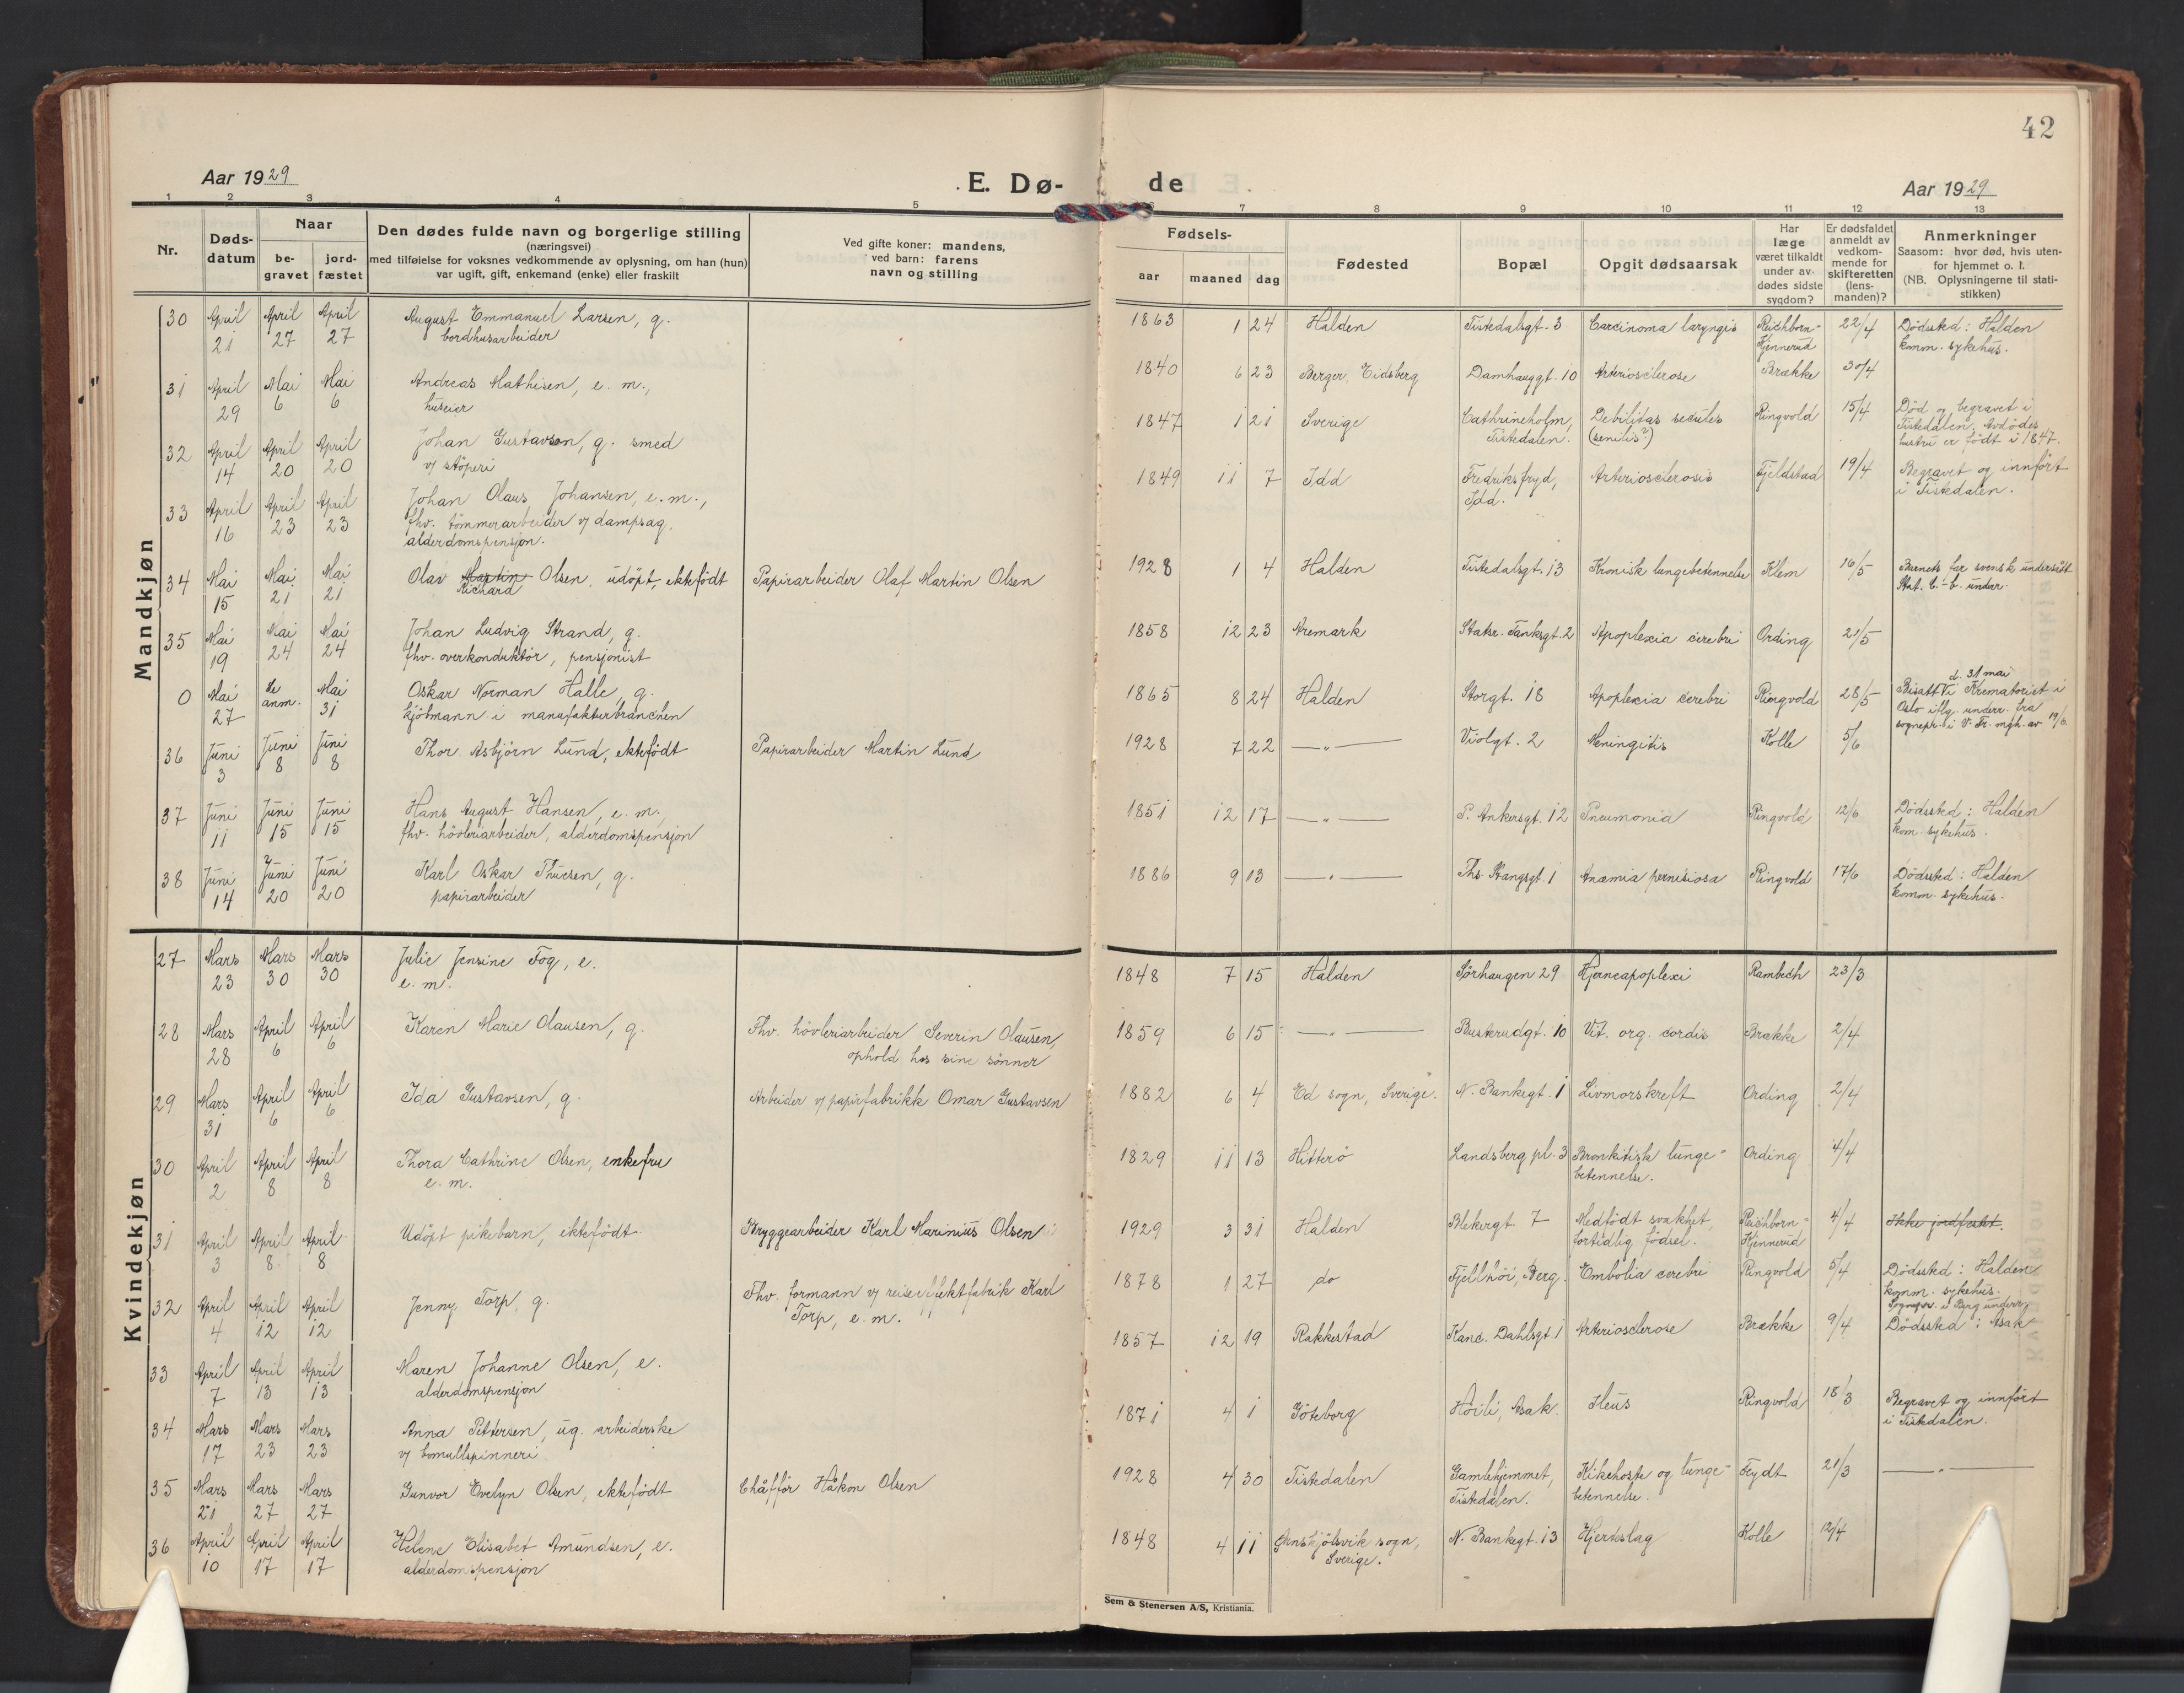 42
Aar 1929
E. Dø-
de
Aar 1929
1 2 3 4 5 6 7 8 9 10 11 12 13
Nr.
Døds-
datum
Naar
be-
gravet
jord-
fæstet
Den dødes fulde navn og borgerlige stilling
(næringsvei)
med tilføielse for voksnes vedkommende av oplysning, om han (hun)
var ugift, gift, enkemand (enke) eller fraskilt
Ved gifte koner: mandens,
ved barn: farens
navn og stilling
Fødsels-
aar
maaned
dag
Fødested
Bopæl
Opgit dødsaarsak
Har
læge
været tilkaldt
under av-
dødes sidste
sygdom?
Er dødsfaldet
anmeldt av
vedkom-
mende for
skifteretten
(lens-
manden)?
Anmerkninger
Saasom: hvor død, hvis uten-
for hjemmet o. l.
(NB. Oplysningerne til stati-
stikken)
Mandkjøn
30 April 21 April 27 April 27 August Emmanuel Larsen, g.
bordhusarbeider
1863 1 24 Halden Tistedalsgt. 3 Carcinoma laryngis Reichborn-
Kjennerud 22/4 Dødssted: Halden
komm. sykehus.
31 April 29 Mai 6 Mai 6 Andreas Mathisen, e. m.,
huseier
1840 6 23 Berger, Eidsberg Damhauggt. 10 Arteriosclerose Brække 30/4
32 April 14 April 20 April 20 Johan Gustavson, g. smed
v/ støperi
1847 1 21 Sverige Cathrineholm,
Tistedalen. Debilitas secules
(senilis?) Ringvold 15/4 Død og begravet i
Tistedalen. Avdødes
hustru er født i 1847.
33 April 16 April 23 April 23 Johan Olaus Johansen, e. m.,
fhv. tømmerarbeider v/ dampsag.
alderdomspensjon.
1849 11 7 Idd Fredriksfryd,
Idd. Arteriosclerosis Fjeldstad 19/4 Begravet og innført
i Tistedalen.
34 Mai 15 Mai 21 Mai 21 Olav Martin Olsen, udøpt, ektefødt
Richard
Papirarbeider Olaf Martin Olsen
1928 1 4 Halden Tistedalsgt. 13 Kronisk lungebetennelse Klem 16/5 Barnets far svensk undersått
Stat. C.-b. underr.
35 Mai 19 Mai 24 Mai 24 Johan Ludvig Strand, g.
fhv. overkonduktør, pensjonist
1858 12 23 Aremark Statsr. Tanksgt. 2 Apoplexia cerebri Ording 21/5
0 Mai 27 Se anm. Mai 31 Oskar Norman Halle, g.
kjøbmann i manufakturbranchen
1865 8 24 Halden Storgt. 18 Apoplexia cerebri Ringvold 28/5 d. 31 mai
Bisatt i Krematoriet i
Oslo iflg. underr. fra
sognepr. i V. Fr. mgh. av 19/6.
36 Juni 3 Juni 8 Juni 8 Thor Asbjørn Lund, ektefødt
Papirarbeider Martin Lund
1928 7 22 —"— Violgt. 2 Meningitis Kolle 5/6
37 Juni 11 Juni 15 Juni 15 Hans August Hansen, e. m.,
fhv. høvleriarbeider, alderdomspensjon
1851 12 17 —"— P. Ankersgt. 12 Pneumonia Ringvold 12/6 Dødssted: Halden
kom. sykehus.
38 Juni 14 Juni 20 Juni 20 Karl Oskar Thuesen, g.
papirarbeider
1886 9 13 —"— Ths. Stangsgt. 1 Anæmia pernisiosa Ringvold 17/6 Dødssted: Halden
komm. sykehus.
Kvindekjøn
27 Mars 23 Mars 30 Mars 30 Julie Jensine Fog, e.
e. m.
1848 7 15 Halden Sørhaugen 29 Hjerneapoplexi Rambech 23/3
28 Mars 28 April 6 April 6 Karen Marie Olausen, g.
Fhv. høvleriarbeider Severin Olausen,
ophold hos sine sønner
1859 6 15 —"— Busterudgt. 10 Vit. org. cordis Brække 2/4
29 Mars 31 April 6 April 6 Ida Gustavsen, g.
Arbeider v/ papirfabrikk Omar Gustavsen
1882 6 4 Ed sogn, Sverige. N. Bankegt. 1 Livmorskreft Ording 2/4
30 April 2 April 8 April 8 Thora Cathrine Olsen, enkefru
e. m.
1829 11 13 Hitterø Landsberg pl. 3 Bronkitisk lunge-
betennelse. Ording 4/4
31 April 3 April 8 April 8 Udøpt pikebarn, ektefødt
Bryggearbeider Karl Marinius Olsen
1929 3 31 Halden Blekergt. 7 Medfødt svakhet,
fortidlig fødsel. Reichborn-
Kjennerud 4/4 Ikke jordfestet.
32 April 4 April 12 April 12 Jenny Torp, g.
Fhv. formann v/ reiseeffektfabrik Karl
Torp, e. m.
1878 1 27 do Fjellhøi, Berg. Embolia cerebri Ringvold 5/4 Dødssted: Halden
komm. sykehus.
Sognepr. i Berg underr.
33 April 7 April 13 April 13 Maren Johanne Olsen, e.
alderdomspensjon
1857 12 19 Rakkestad Kanc. Dahlsgt. 1 Arteriosclerose Brække 9/4 Dødssted: Asak
34 Mars 17 Mars 23 Mars 23 Anna Pettersen, ug. arbeiderske
v/ bomullspinneri.
1871 4 1 Göteborg Høili, Asak. Ileus Ringvold 18/3 Begravet og innført
i Tistedalen.
35 Mars 21 Mars 27 Mars 27 Gunvor Evelyn Olsen, ektefødt
Chåffør Håkon Olsen
1928 4 30 Tistedalen Gamlehjemmet,
Tistedalen. Kikehoste og lunge-
betennelse. Feydt 21/3 —"—
36 April 10 April 17 April 17 Helene Elisabet Amundsen, e.
alderdomspensjon
1848 4 11 sogn,
Sverige. N. Bankegt. 13 Hjerteslag Kolle 12/4
Sem & Stenersen A/S, Kristiania.